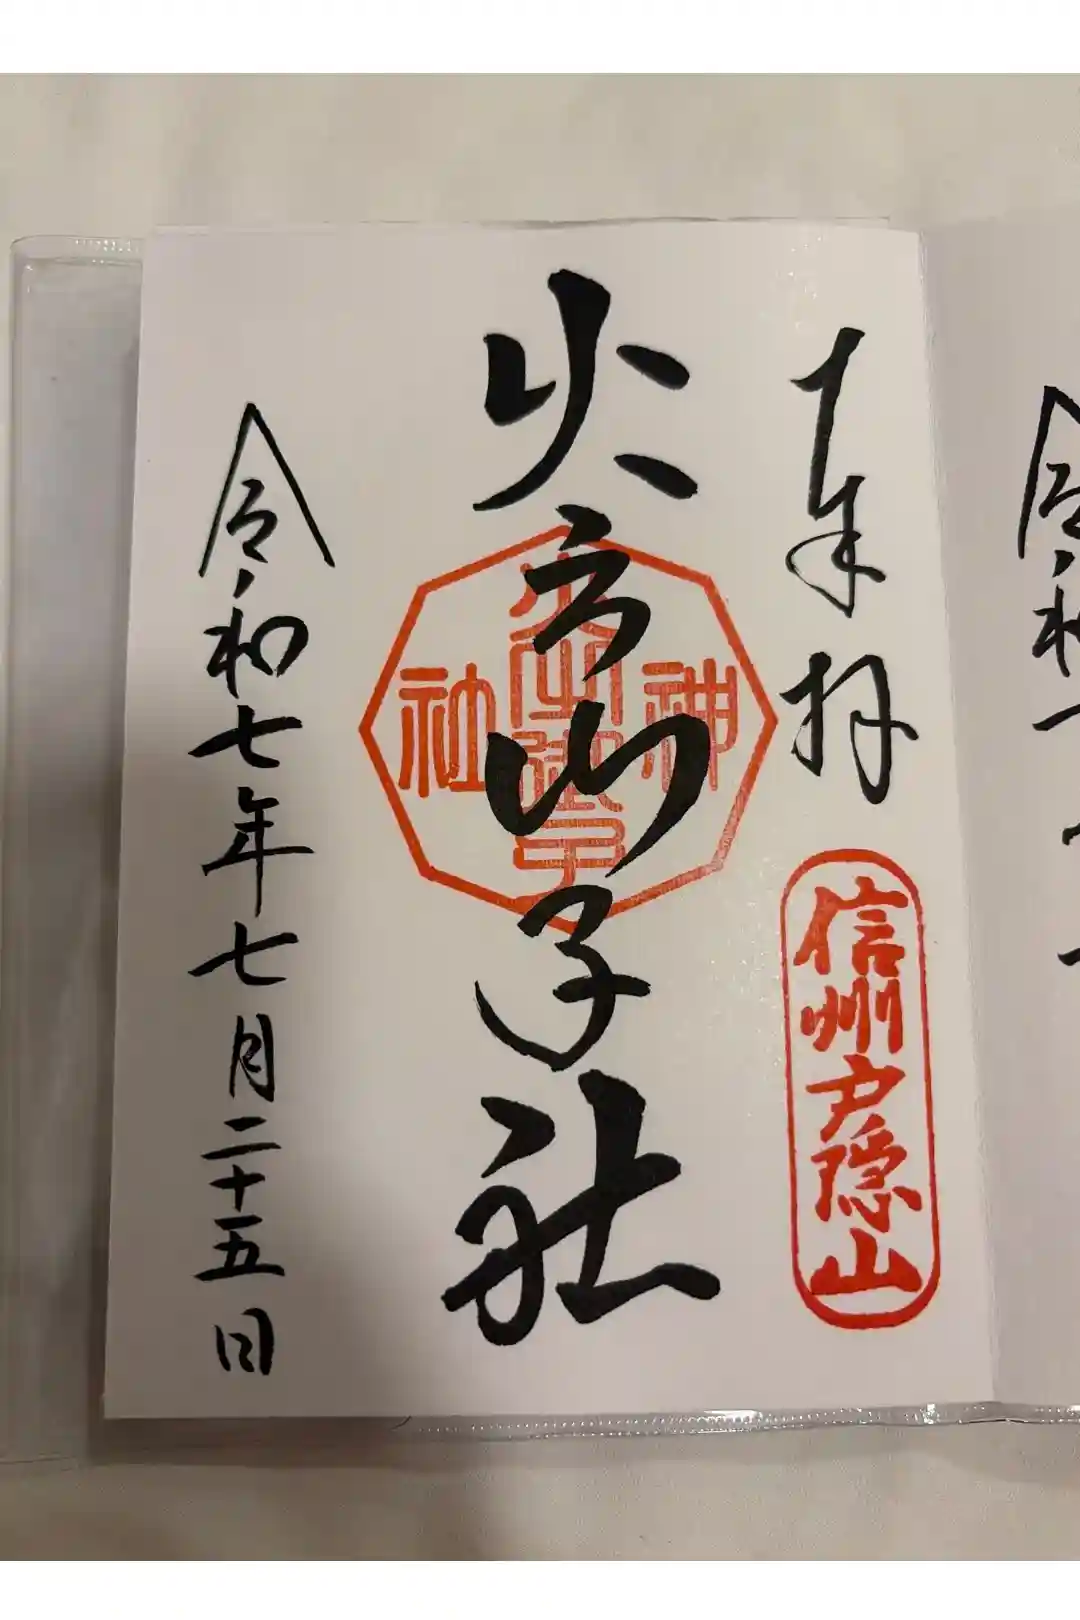 奉拝
信州戸隠山
火之御子社
神
火之御子
社
令和七年七月二十五日
令和